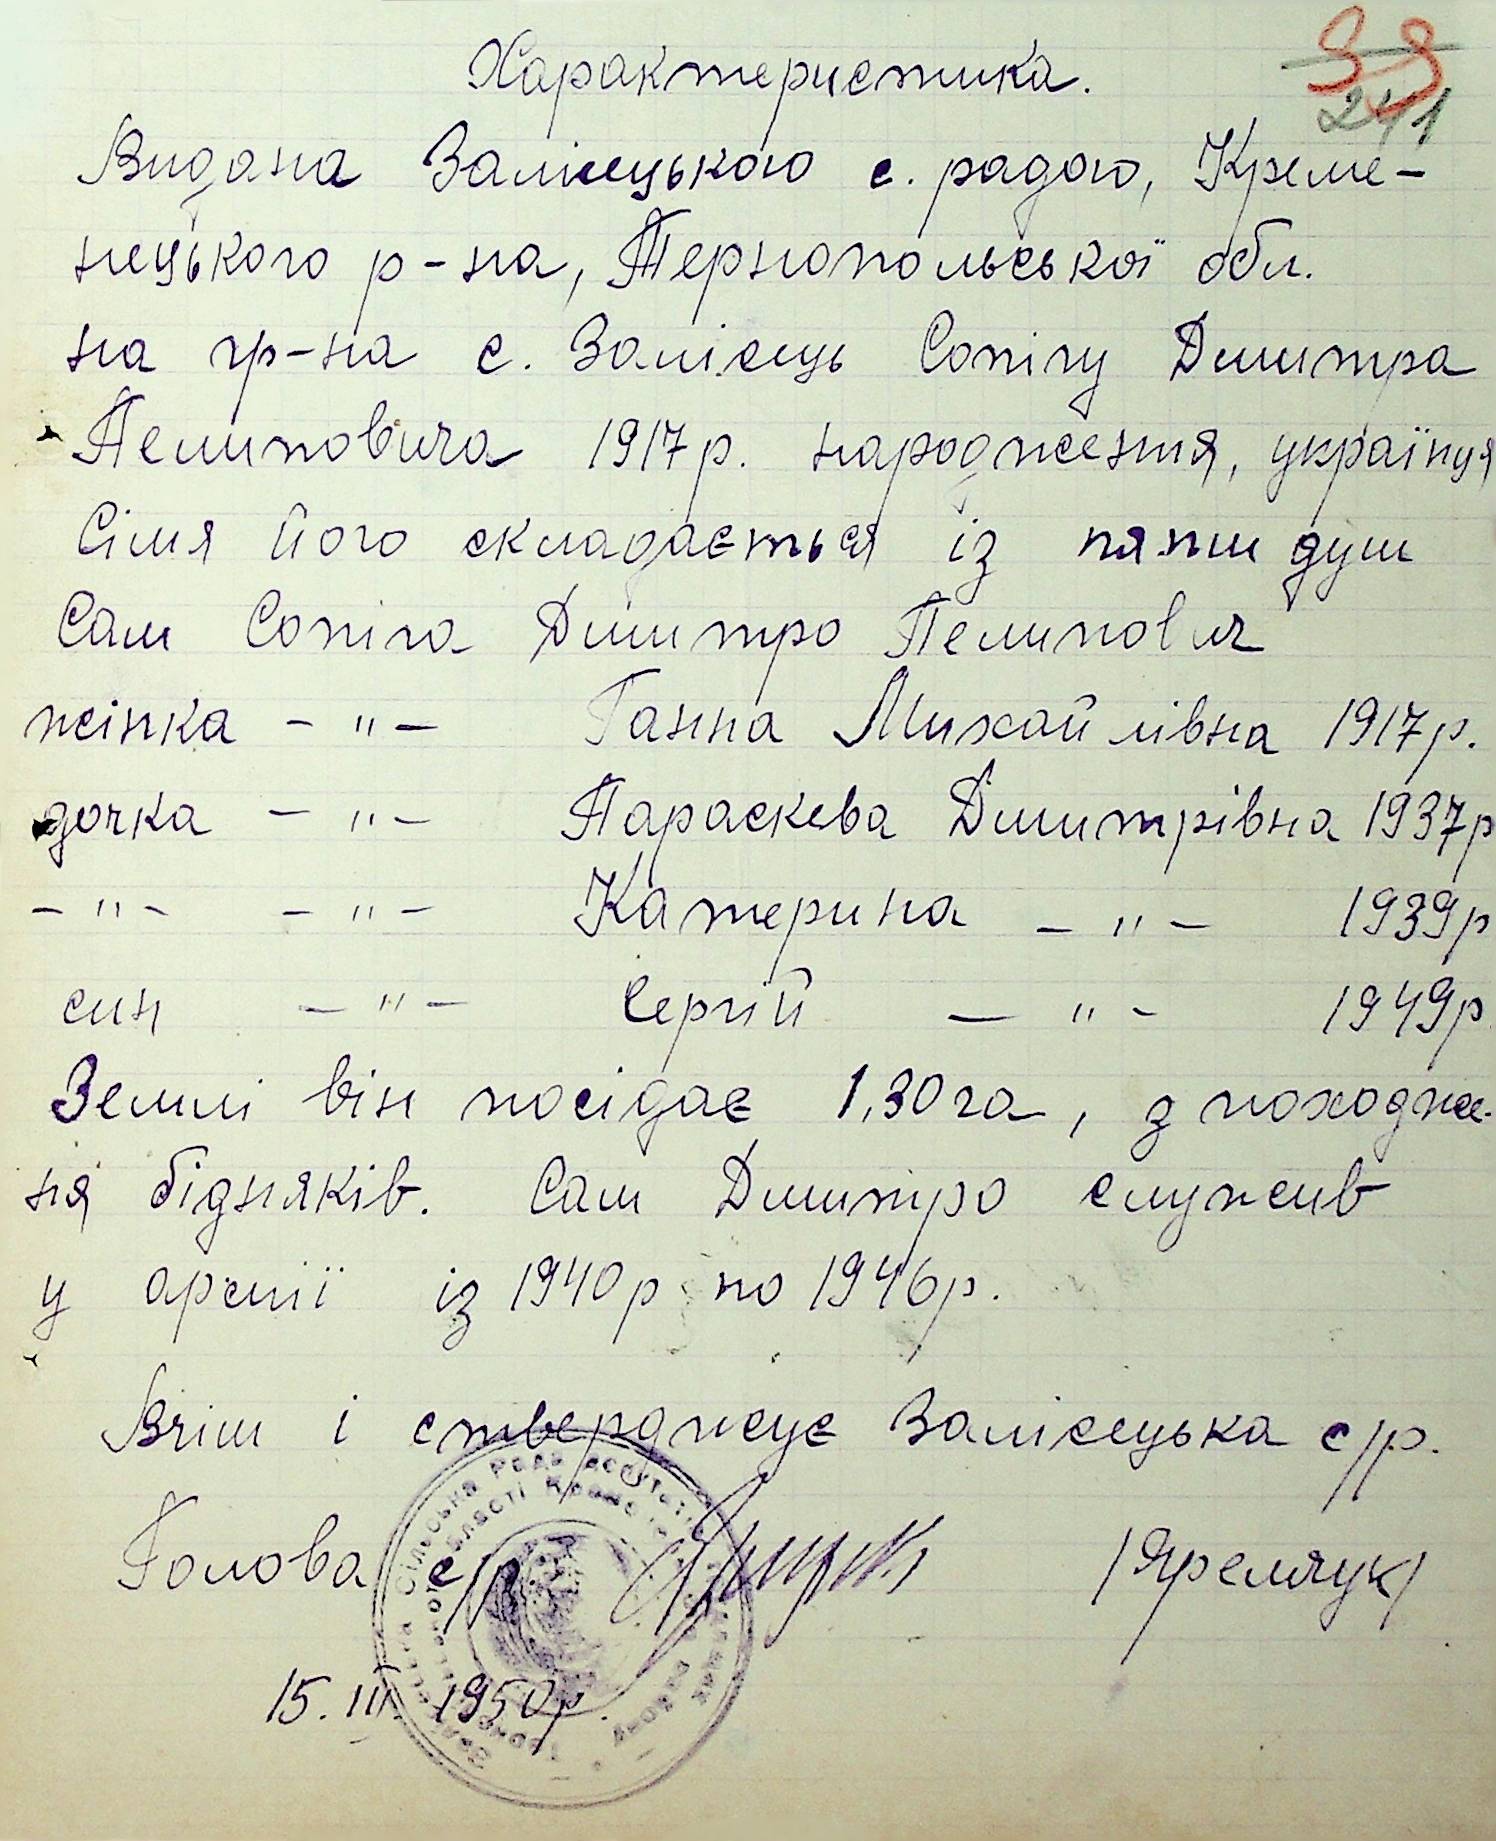 Характеристика.
33
241
Видана Залісецькою с. радою, Креме-
нецького р-на, Тернопольської обл.
на гр-на с. Залісець Сопігу Дмитра
Пелиповича 1917 р. народження, українця
Сімя його складається із пяти душ
Сам Сопіга Дмитро Пелипович
жінка - " - Ганна Михайлівна 1917 р.
дочка - " - Параскева Дмитрівна 1937 р
- " - - " - Катерина - " - 1939 р
син - " - Сергій - " - 1949 р.
Землі він посідає 1,30 га, з походже-
ня бідняків. Сам Дмитро служив
у армії із 1940 р по 1946 р.
В чім і стверджує Залісецька с/р.
Голова с/р /Яремчук/
15. III. 1950 р.
Сільська Рада депутатів
області